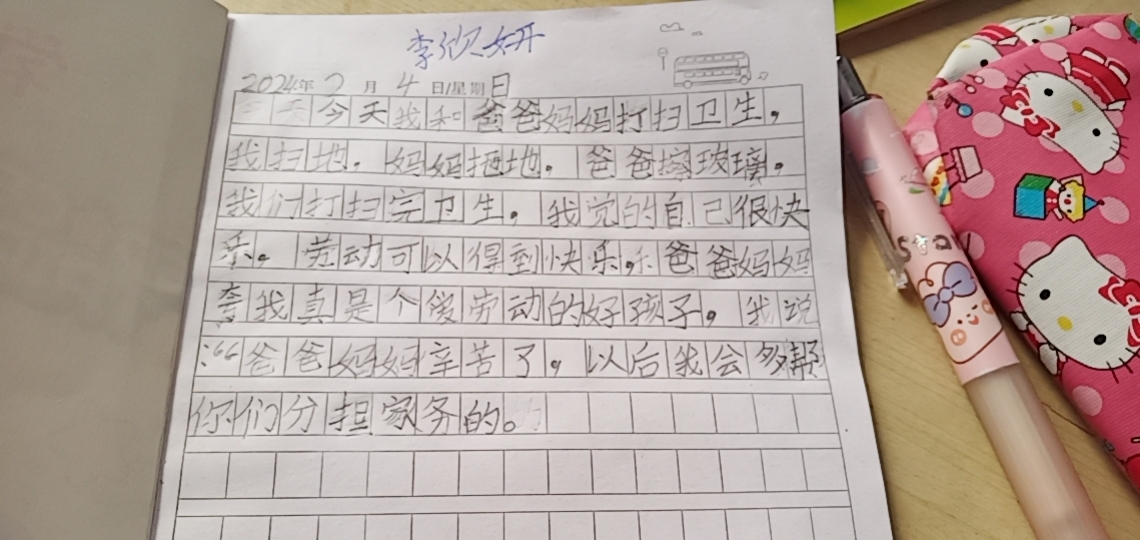 李欣妍
2024年2月4日/星期日
今天今天我和爸爸妈妈打扫卫生，
我扫地。妈妈拖地。爸爸擦玻璃。
我们打扫完卫生。我觉的自己很快
乐。劳动可以得到快乐，爸爸妈妈
夸我真是个爱劳动的好孩子。我说
:“爸爸妈妈辛苦了。以后我会多帮
你们分担家务的。